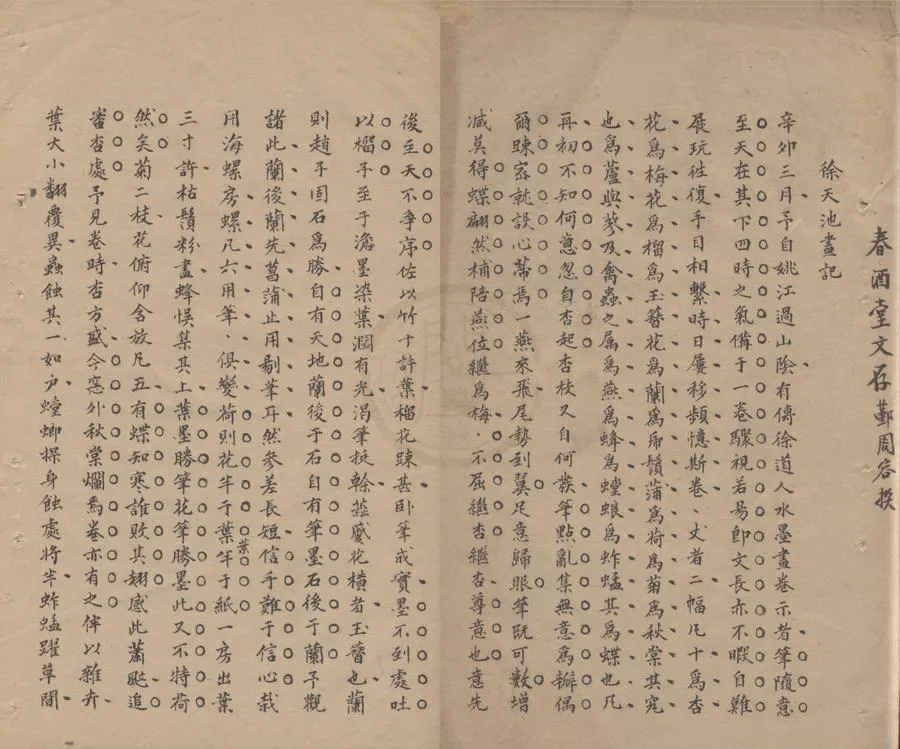 春酒堂文存 鄞周容撰
徐天池畫記
辛卯三月予自姚江過山陰有儔徐道人水墨畫卷示者筆隨意
至天在其下四時之氣備于一卷驟視若易即文長亦不暇自難
展玩往復手目相繫時日屢移頻憶斯卷丈者二幅凡十為杏
花為梅花為榴為玉簪花為蘭為吊鬚蒲為荷為菊為秋棠其宛
也為蘆與蓼及禽蟲之属為燕為蜂為螳蜋為蚱蜢其為蝶也凡
再初不知何意忽自杏起杏枝又自何發筆點亂集無意為瓣偶
爾踈密就設心蒂焉一燕來飛尾勢到翼足意歸眼筆既可數增
减莫得蝶翩然補陪燕位繼為梅不屈繼杏繼杏尊意也意先
後至天不爭序佐以竹十許葉榴花踈甚卧筆戒實墨不到處吐
以榴子至于澹墨染葉濶有光渴筆挺榦蕋蔵花橫者玉簪也蘭
則趙子固石為勝自有天地蘭後于石自有筆墨石後于蘭予觀
諸此蘭後蘭先菖蒲止用剔筆耳然參差長短信手難于信心哉
用海螺房螺凡六用筆俱變荷則花半于葉葉半于紙一房出葉
三寸許枯鬚粉盡蜂悞集其上葉墨勝筆花筆勝墨此又不特荷
然矣菊二枝花俯仰含放凡五有蝶知寒誰敗其翅感此蕭颸追
畨杏處予見卷時杏方盛今窓外秋棠爛焉卷亦有之伴以雜卉
葉大小翻覆異蟲蝕其一如戶螳螂探身蝕處將半蚱蜢躍草間